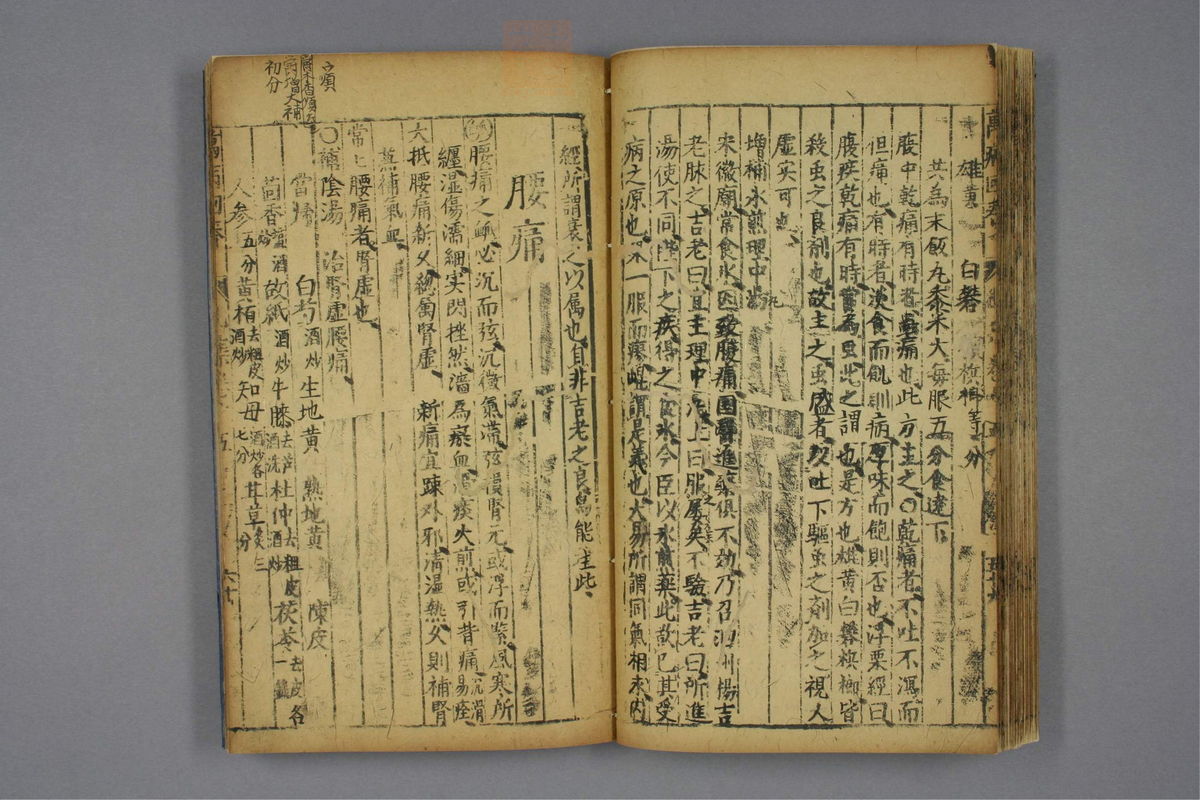 雄黄 白礬 檳榔等分
共為末飯丸黍米大每服五分食遠下
腹中乾痛有時者蟲痛也此方主之○乾痛者不吐不瀉而
但痛也有時者淡食而飢則病厚味而飽則否也浮粟經曰
腹疾乾痛有時當為虫此之謂也是方也雄黄白礬檳榔皆
殺虫之良剤也故主之虫盛者以吐下驅虫之剤加之視人
虚实可也
增補氷煎理中丸
宋徽廟常食氷因致腹痛国醫進藥俱不効乃召泗州楊吉
老脉之吉老曰宜主理中丸上曰服屡矣不驗吉老曰所進
湯使不同陛下之疾得之食氷今臣以氷煎藥此欲已其受
病之原也果一服而瘳崐謂是義也大易所謂同氣相求内
經所謂衰之以属也自非吉老之良烏能主此
腰痛
腰痛之脉必沉而弦沉微氣滞弦損腎元或浮而緊風寒所
纏湿傷濡細实閃挫然濇為瘀血滑痰火煎或引背痛沉滑易痊
大抵腰痛新久總属腎虚 新痛宜踈外邪清湿熱久則補腎
兼補氣血
常七腰痛者腎虚也
○補陰湯 治腎虚腰痛
當帰 白芍酒炒 生地黄 熟地黄 陳皮
茴香塩酒炒 故紙酒炒 牛膝去芦酒洗 杜仲去粗皮酒炒 茯苓去皮各一錢
人参五分 黄栢去粗皮酒炒 知母酒炒各七分 甘草炙三分